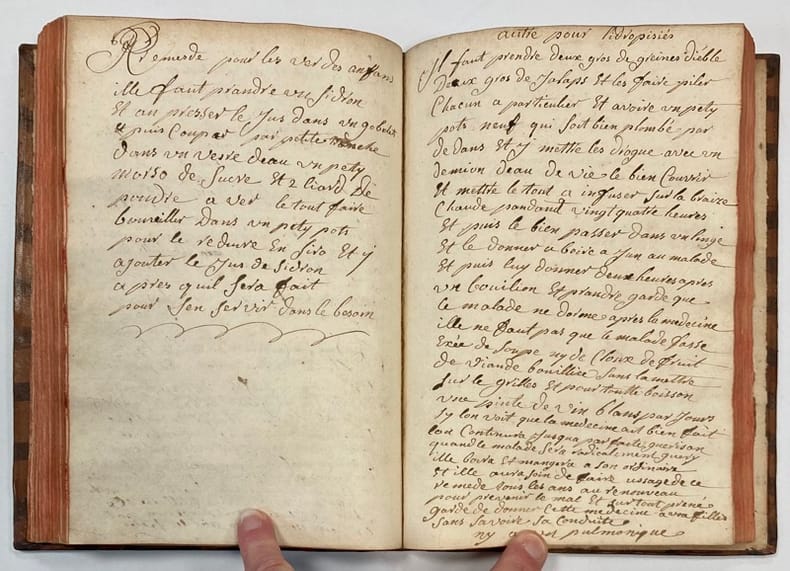 Remesde pour les ver des anffans
ille faut prandre un sidron
Et an presser le Jus dans un gobelet
Et puis Coupar par petite tranche
dans un verre deau un pety
morso de Sucre et 2 liard de
poudre a ver le tout faire
boureillir dans un pety pots
pour le reduire En siro Et y
ajouter le Jus de sidron
a pres quil sera fait
pour sen servir dans le besoin
autre pour lidropisiés
Il faut prendre deux gros de greines dièble
Deux gros de Jalaps et les faire piler
Chacun a particulier et avoire un pety
pots neuf qui soit bien plombé par
de dans et y mettre les drogue avec un
demion deau de vie le bien Couvrir
et mettre le tout a infuser sur la braize
Chaude pandant vingt quatre heures
et puis le bien passer dans un linge
et le donner a boire a Jun au malade
et puis luy donner deux heures apres
un bouillon et prandre garde que
le malade ne dorme apres la medecine
ille ne faut pas que le malade fasse
Exée de soupe ny de Cloux de fruit
de viande bouillie sans la mettre
sur le grilles et pour toutte boisson
une pinte de vin blans par Jours
Sy lon voit que la medecine ait bien fait
lon Continura Jusqua parfaite guerison
quand le malade sera radicalement guery
ille boira et mangera a son ordinaire
et ille aura soin de faire ussage de ce
remede tous les ans au renouveau
pour prevenir le mal et sur tout prené
garde de donner Cette medecine a une filles
sans savoire sa Conduite
ny a un pulmonique